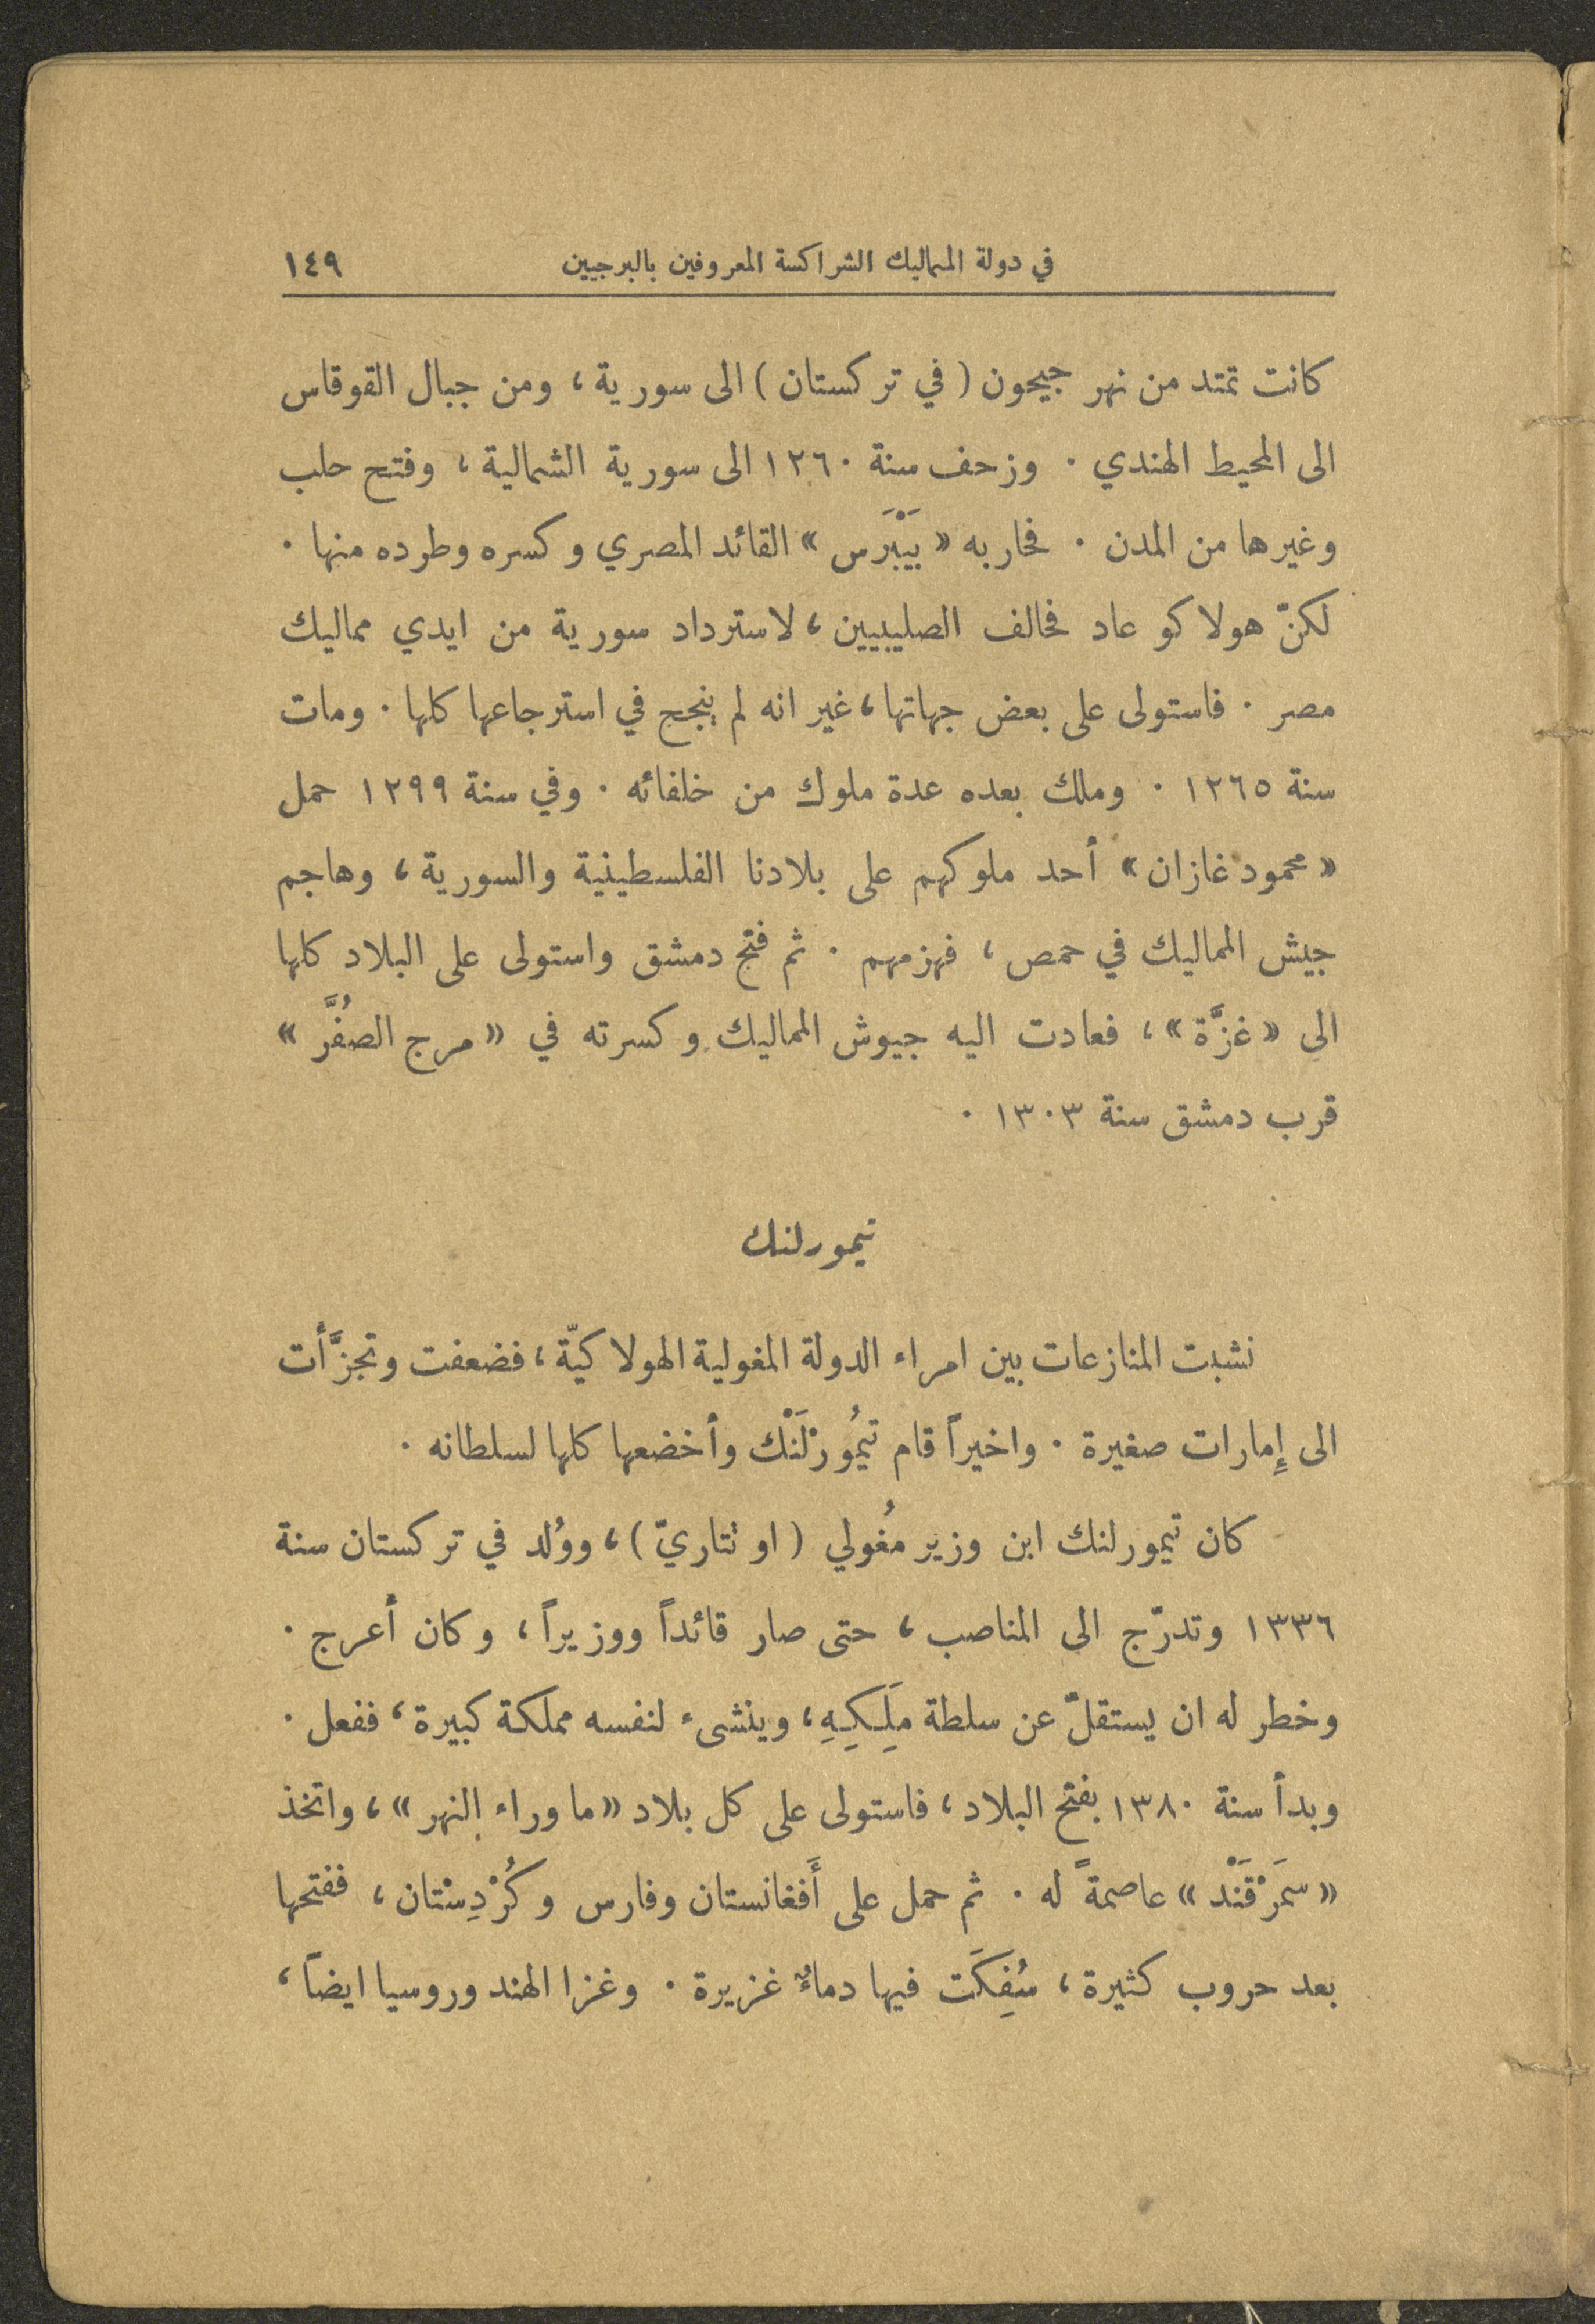 في دولة المماليك الشراكسة المعروفين بالبرجيين ١٤٩
كانت تمتد من نهر جيحون (في تركستان) الى سورية، ومن جبال القوقاس
الى المحيط الهندي. وزحف سنة ١٢٦٠ الى سورية الشمالية، وفتح حلب
وغيرها من المدن. فحاربه «بَيْبَرَس» القائد المصري وكسره وطرده منها.
لكنّ هولاكو عاد فحالف الصليبيين، لاسترداد سورية من ايدي مماليك
مصر. فاستولى على بعض جهاتها، غير انه لم ينجح في استرجاعها كلها. ومات
سنة ١٢٦٥. وملك بعده عدة ملوك من خلفائه. وفي سنة ١٢٩٩ حمل
«محمود غازان» أحد ملوكهم على بلادنا الفلسطينية والسورية، وهاجم
جيش المماليك في حمص، فهزمهم. ثم فتح دمشق واستولى على البلاد كلها
الى «غزَّة»، فعادت اليه جيوش المماليك وكسرته في «مرج الصُفَّر»
قرب دمشق سنة ١٣٠٣.
تيمورلنك
نشبت المنازعات بين امراء الدولة المغولية الهولاكيّة، فضعفت وتجزَّأت
الى إِمارات صغيرة. واخيراً قام تيمُورْلَنْك وأخضعها كلها لسلطانه.
كان تيمورلنك ابن وزير مُغولي (او تتاريّ)، ووُلد في تركستان سنة
١٣٣٦ وتدرّج الى المناصب، حتى صار قائداً ووزيراً، وكان أعرج.
وخطر له ان يستقلّ عن سلطة مَلِكِهِ، وينشىء لنفسه مملكة كبيرة، ففعل.
وبدأ سنة ١٣٨٠ بفتح البلاد، فاستولى على كل بلاد «ما وراء النهر»، واتخذ
«سَمَرْقَنْد» عاصمةً له. ثم حمل على أَفغانستان وفارس وكُرْدِسْتان، ففتحها
بعد حروب كثيرة، سُفِكَت فيها دماءٌ غزيرة. وغزا الهند وروسيا ايضاً،